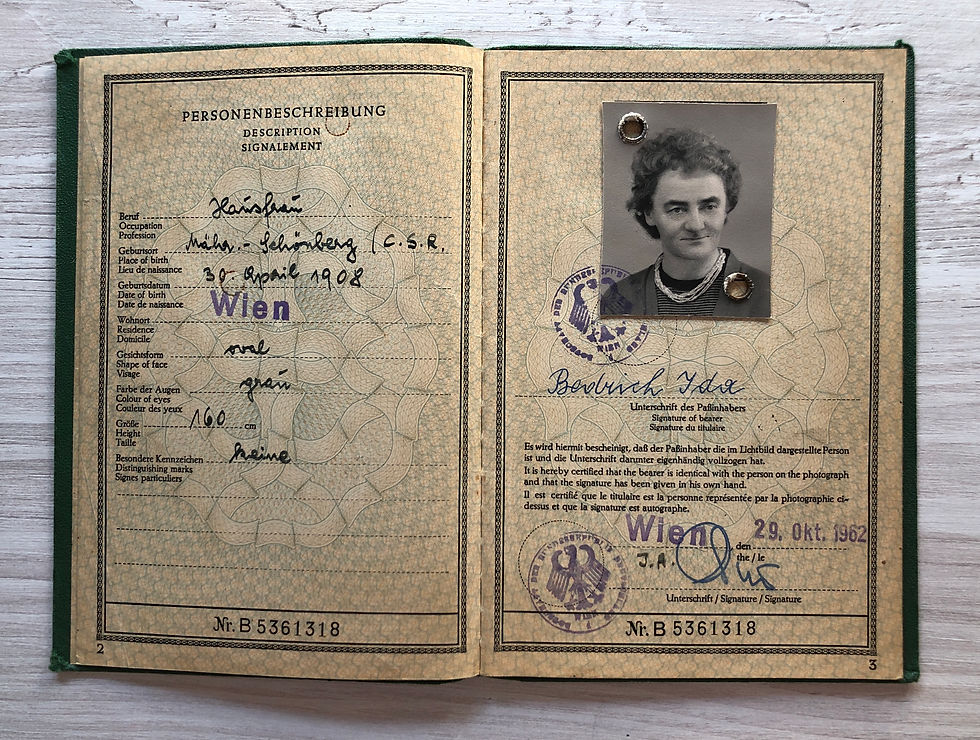 PERSONENBESCHREIBUNG
DESCRIPTION
SIGNALEMENT
Beruf Hausfrau
Occupation
Profession
Geburtsort Mähr.-Schönberg (C.S.R.
Place of birth
Lieu de naissance
Geburtsdatum 30. April 1908
Date of birth
Date de naissance
Wohnort Wien
Residence
Domicile
Gesichtsform oval
Shape of face
Visage
Farbe der Augen grau
Colour of eyes
Couleur des yeux
Größe 160 cm
Height
Taille
Besondere Kennzeichen keine
Distinguishing marks
Signes particuliers
Nr. B 5361318
2
WIEN
Bedrich Ida
Unterschrift des Paßinhabers
Signature of bearer
Signature du titulaire
Es wird hiermit bescheinigt, daß der Paßinhaber die im Lichtbild dargestellte Person
ist und die Unterschrift darunter eigenhändig vollzogen hat.
It is hereby certified that the bearer is identical with the person on the photograph
and that the signature has been given in his own hand.
Il est certifié que le titulaire est la personne représentée par la photographie ci-
dessus et que la signature est autographe.
Wien den 29. Okt. 1962
the / le
J.A.
Unterschrift / Signature / Signature
BOTSCHAFT DER BUNDESREPUBLIK DEUTSCHLAND
WIEN
Nr. B 5361318
3